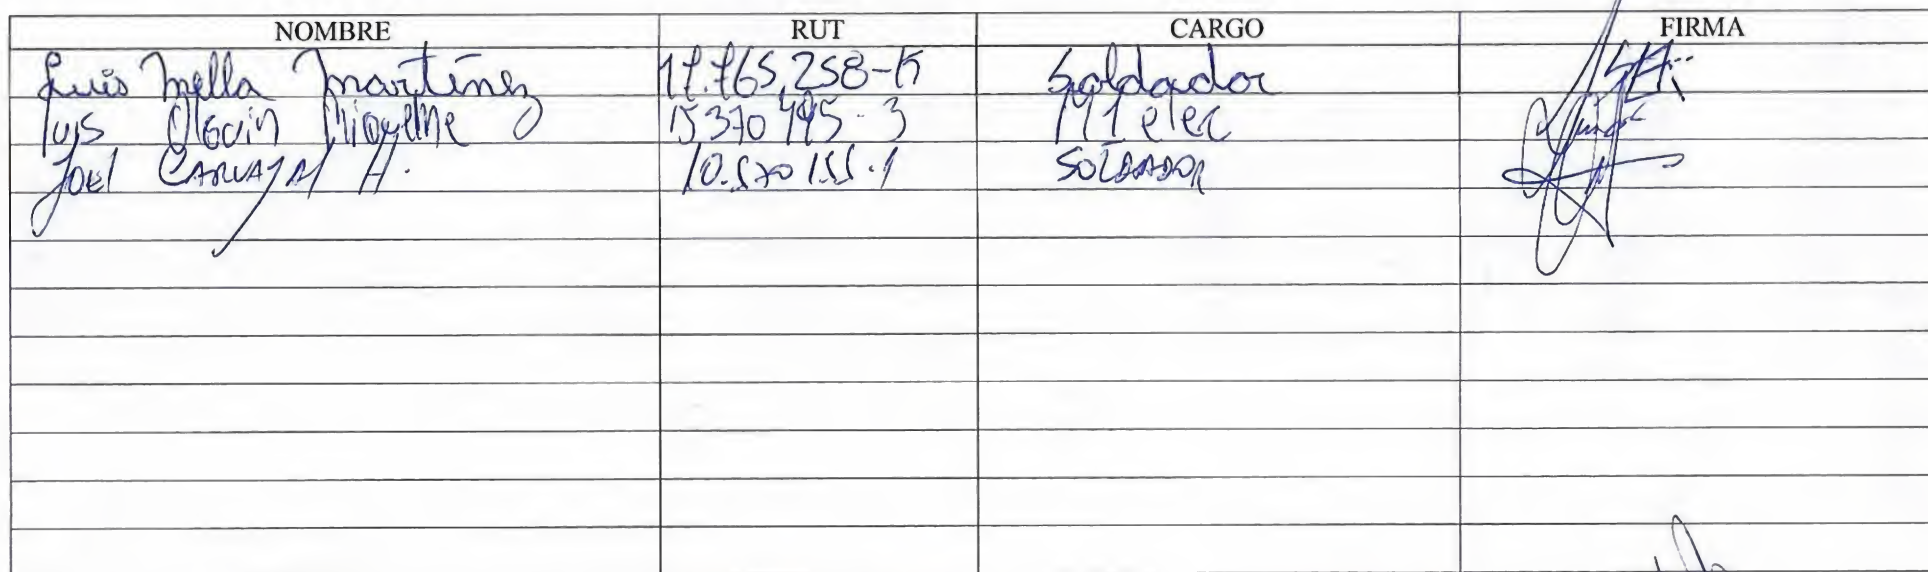 NOMBRE RUT CARGO FIRMA
Luis Mella Martínez 17.765,258-K Soldador
Luis Olguin Miquelme 15370495-3 M1 elec
Joel CARVAJAL A. 10.570155-1 SOLDADOR